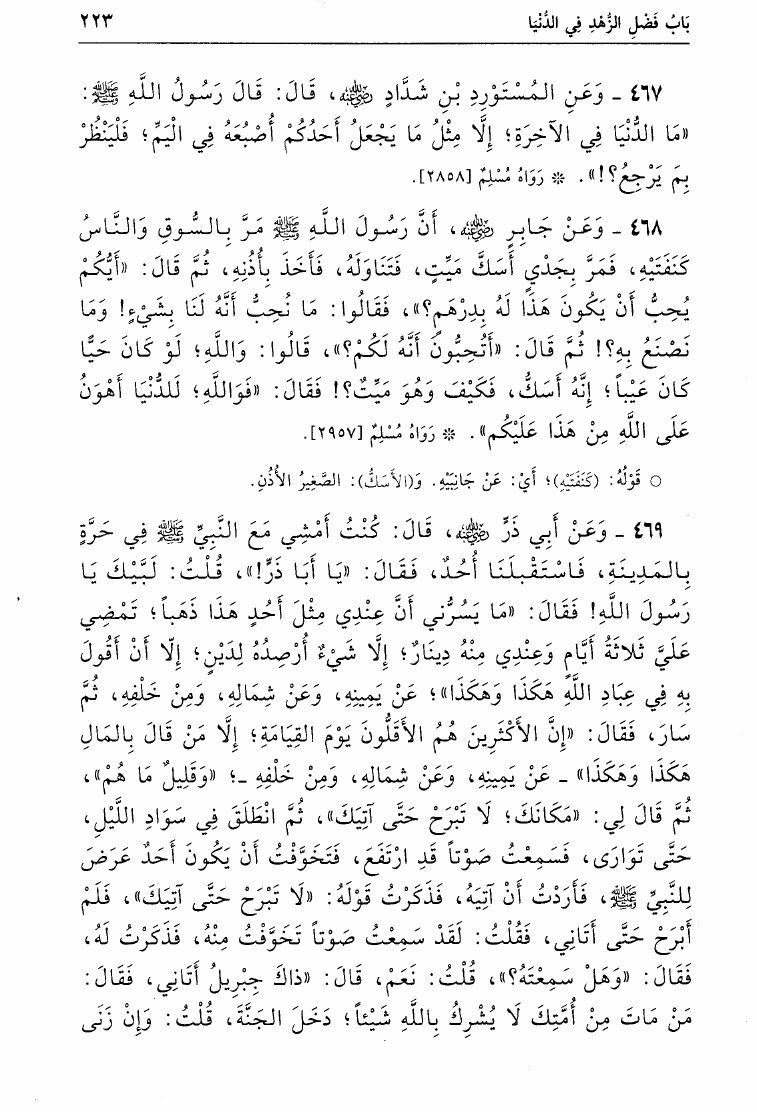 بَابُ فَضْلِ الزُّهْدِ فِي الدُّنْيَا ٢٢٣
٤٦٧ ـ وَعَنِ الـمُسْتَوْرِدِ بْنِ شَدَّادٍ رضي الله عنه، قَالَ: قَالَ رَسُولُ اللَّهِ ﷺ:
«مَا الدُّنْيَا فِي الآخِرَةِ؛ إِلَّا مِثْلُ مَا يَجْعَلُ أَحَدُكُمْ أُصْبُعَهُ فِي الْيَمِّ؛ فَلْيَنْظُرْ
بِمَ يَرْجِعُ؟!». * رَوَاهُ مُسْلِمٌ [٢٨٥٨].
٤٦٨ ـ وَعَنْ جَابِرٍ رضي الله عنه، أَنَّ رَسُولَ اللَّهِ ﷺ مَرَّ بِالسُّوقِ وَالنَّاسُ
كَنَفَتَيْهِ، فَمَرَّ بِجَدْيٍ أَسَكَّ مَيِّتٍ، فَتَنَاوَلَهُ، فَأَخَذَ بِأُذُنِهِ، ثُمَّ قَالَ: «أَيُّكُمْ
يُحِبُّ أَنْ يَكُونَ هَذَا لَهُ بِدِرْهَمٍ؟»، فَقَالُوا: مَا نُحِبُّ أَنَّهُ لَنَا بِشَيْءٍ! وَمَا
نَصْنَعُ بِهِ؟! ثُمَّ قَالَ: «أَتُحِبُّونَ أَنَّهُ لَكُمْ؟»، قَالُوا: وَاللَّهِ؛ لَوْ كَانَ حَيًّا
كَانَ عَيْباً؛ إِنَّهُ أَسَكُّ، فَكَيْفَ وَهُوَ مَيِّتٌ؟! فَقَالَ: «فَوَاللَّهِ؛ لَلدُّنْيَا أَهْوَنُ
عَلَى اللَّهِ مِنْ هَذَا عَلَيْكُم». * رَوَاهُ مُسْلِمٌ [٢٩٥٧].
○ قَوْلُهُ: (كَنَفَتَيْهِ)؛ أَيْ: عَنْ جَانِبَيْهِ. وَ(الأَسَكُّ): الصَّغِيرُ الأُذُنِ.
٤٦٩ ـ وَعَنْ أَبِي ذَرٍّ رضي الله عنه، قَالَ: كُنْتُ أَمْشِي مَعَ النَّبِيِّ ﷺ فِي حَرَّةٍ
بِالـمَدِينَةِ، فَاسْتَقْبَلَنَا أُحُدٌ، فَقَالَ: «يَا أَبَا ذَرٍّ!»، قُلْتُ: لَبَّيْكَ يَا
رَسُولَ اللَّهِ! فَقَالَ: «مَا يَسُرُّنِي أَنَّ عِنْدِي مِثْلَ أُحُدٍ هَذَا ذَهَباً؛ تَمْضِي
عَلَيَّ ثَلَاثَةُ أَيَّامٍ وَعِنْدِي مِنْهُ دِينَارٌ؛ إِلَّا شَيْءٌ أُرْصِدُهُ لِدَيْنٍ؛ إِلَّا أَنْ أَقُولَ
بِهِ فِي عِبَادِ اللَّهِ هَكَذَا وَهَكَذَا»؛ عَنْ يَمِينِهِ، وَعَنْ شِمَالِهِ، وَمِنْ خَلْفِهِ، ثُمَّ
سَارَ، فَقَالَ: «إِنَّ الأَكْثَرِينَ هُمُ الأَقَلُّونَ يَوْمَ القِيَامَةِ؛ إِلَّا مَنْ قَالَ بِالـمَالِ
هَكَذَا وَهَكَذَا» ـ عَنْ يَمِينِهِ، وَعَنْ شِمَالِهِ، وَمِنْ خَلْفِهِ ـ؛ «وَقَلِيلٌ مَا هُمْ»،
ثُمَّ قَالَ لِي: «مَكَانَكَ؛ لَا تَبْرَحْ حَتَّى آتِيَكَ»، ثُمَّ انْطَلَقَ فِي سَوَادِ اللَّيْلِ،
حَتَّى تَوَارَى، فَسَمِعْتُ صَوْتاً قَدِ ارْتَفَعَ، فَتَخَوَّفْتُ أَنْ يَكُونَ أَحَدٌ عَرَضَ
لِلنَّبِيِّ ﷺ، فَأَرَدْتُ أَنْ آتِيَهُ، فَذَكَرْتُ قَوْلَهُ: «لَا تَبْرَحْ حَتَّى آتِيَكَ»، فَلَمْ
أَبْرَحْ حَتَّى أَتَانِي، فَقُلْتُ: لَقَدْ سَمِعْتُ صَوْتاً تَخَوَّفْتُ مِنْهُ، فَذَكَرْتُ لَهُ،
فَقَالَ: «وَهَلْ سَمِعْتَهُ؟»، قُلْتُ: نَعَمْ، قَالَ: «ذَاكَ جِبْرِيلُ أَتَانِي، فَقَالَ:
مَنْ مَاتَ مِنْ أُمَّتِكَ لَا يُشْرِكُ بِاللَّهِ شَيْئاً؛ دَخَلَ الجَنَّةَ، قُلْتُ: وَإِنْ زَنَى